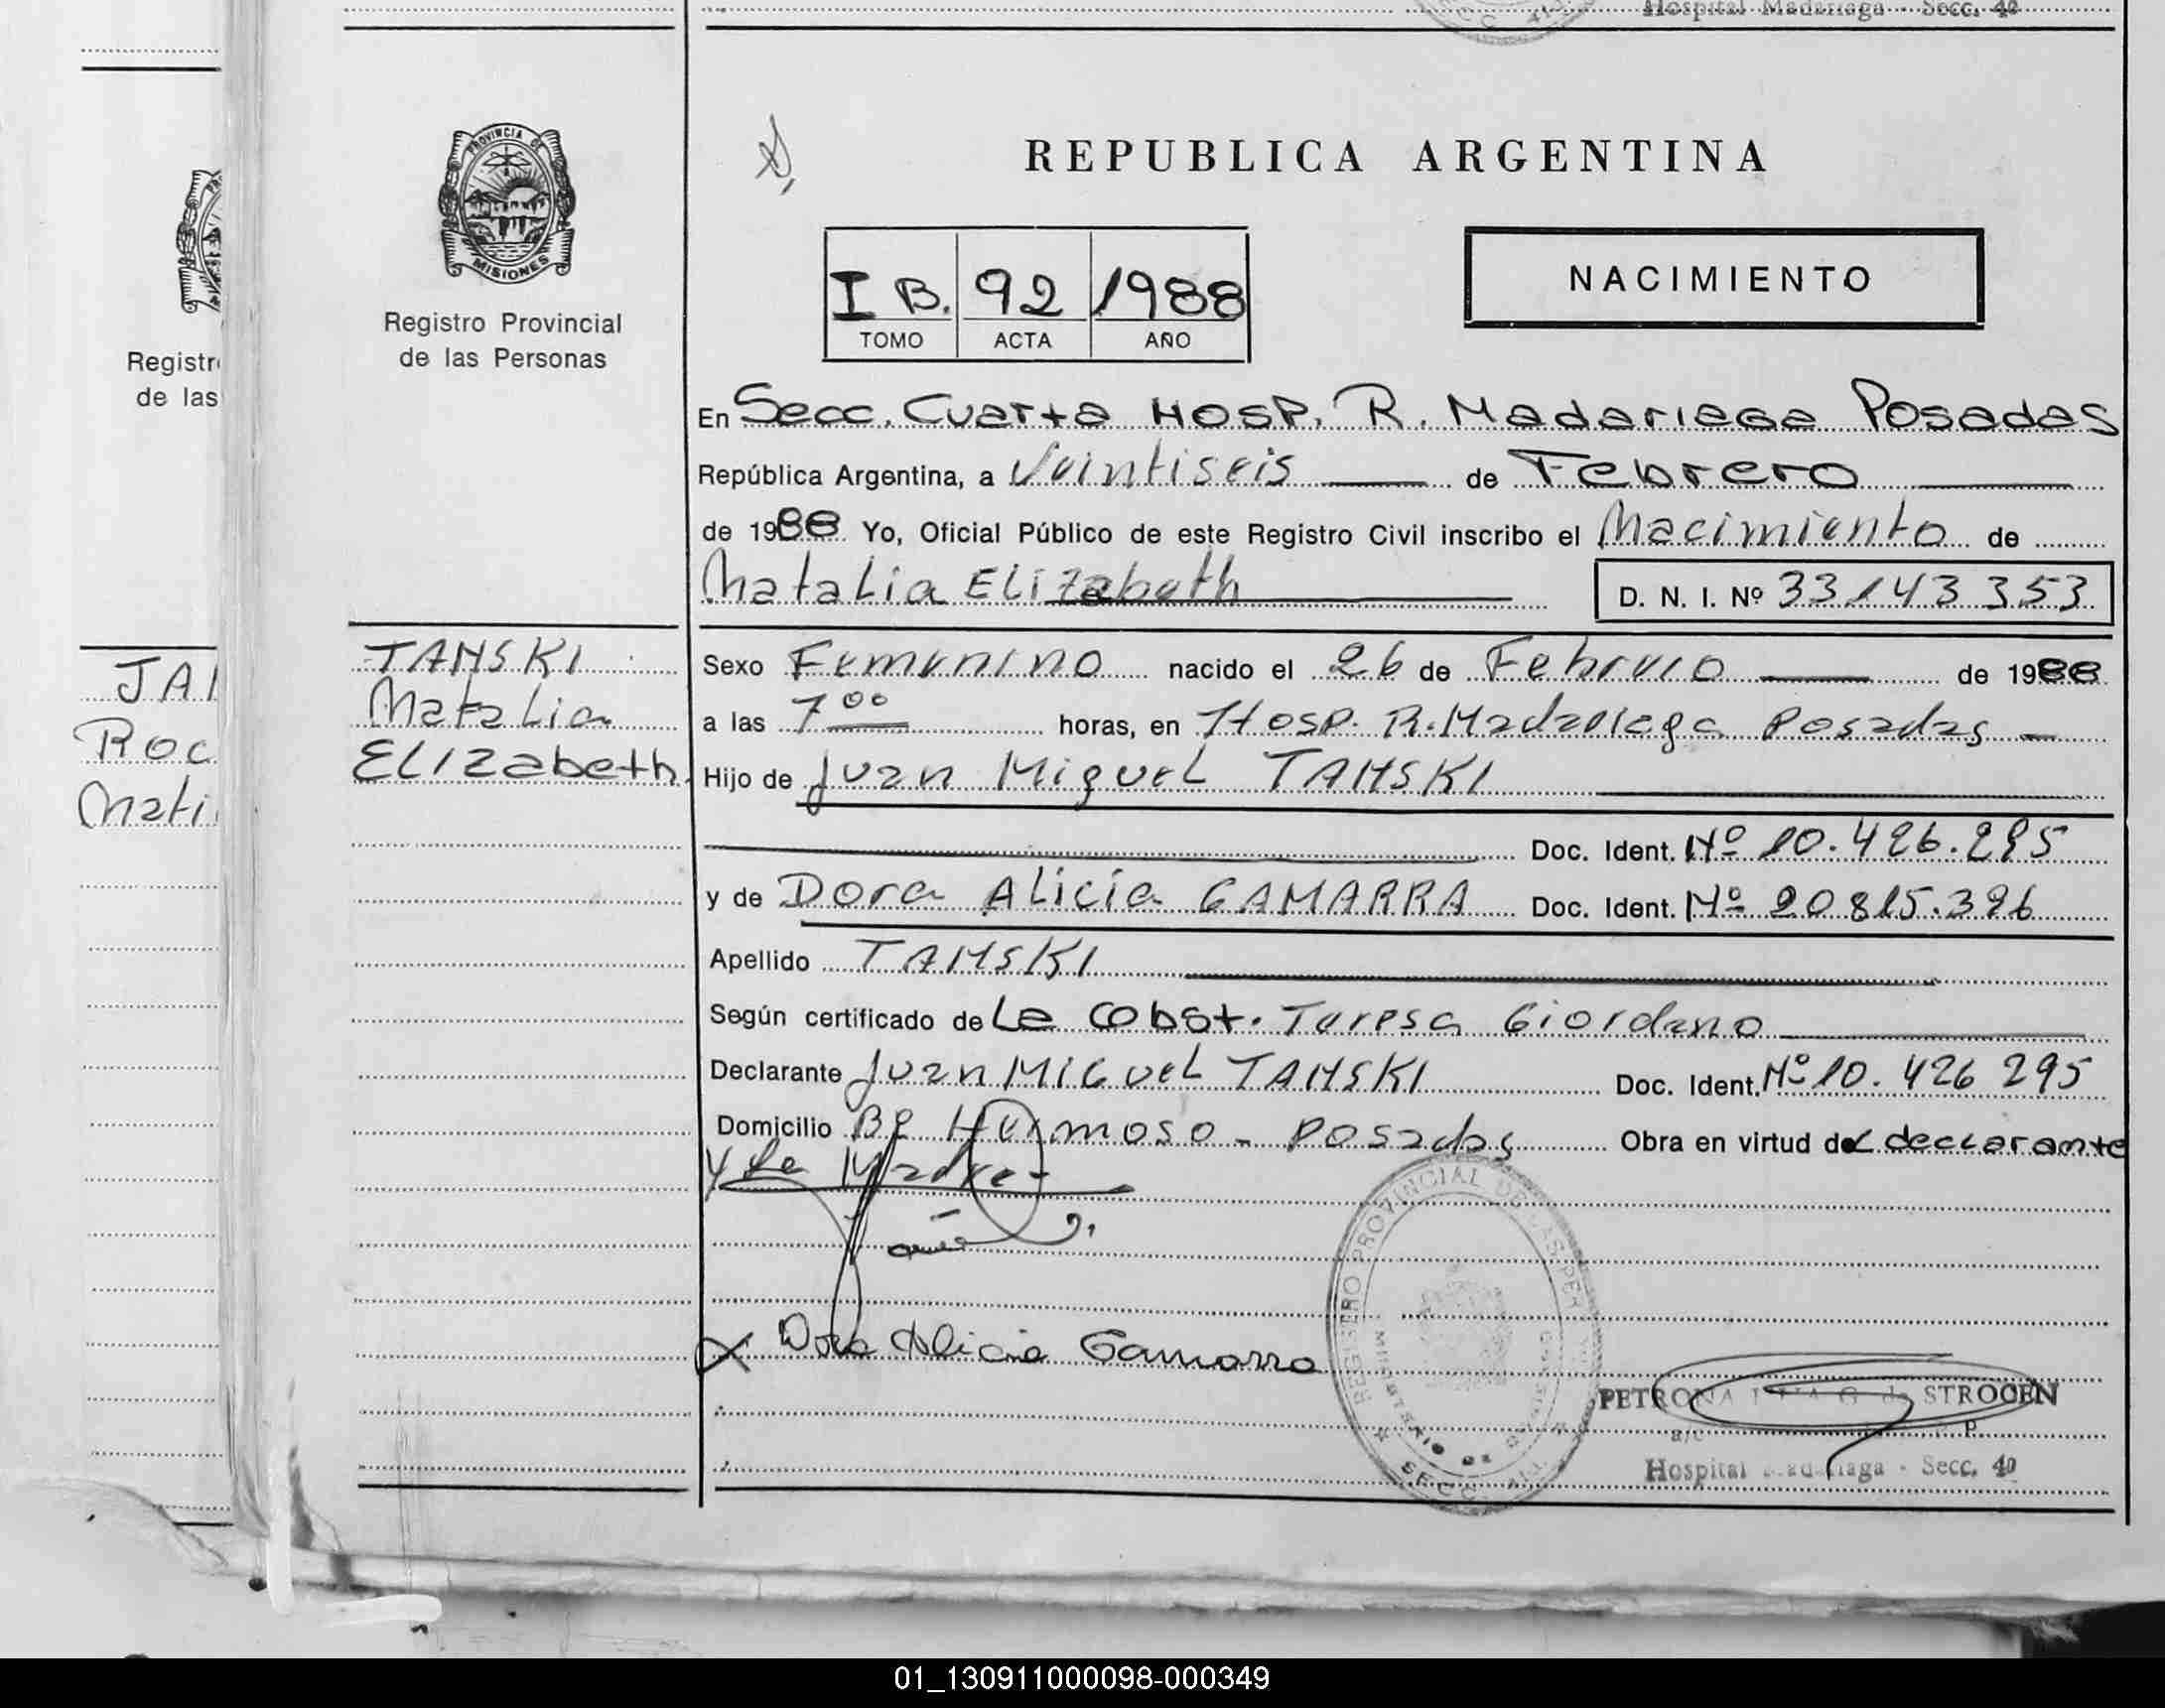 Hospital Madariaga - Secc. 4º
PROVINCIA DE
MISIONES
Registro Provincial
de las Personas
Registr
de las
REPUBLICA ARGENTINA
I B. 92 1988
TOMO ACTA AÑO
NACIMIENTO
En Secc. Cuarta Hosp. R. Madariaga Posadas
República Argentina, a Veintiseis de Febrero
de 1988 Yo, Oficial Público de este Registro Civil inscribo el Nacimiento de
Natalia Elizabeth D. N. I. Nº 33143353
JAN
Roc
Mati
TANSKI
Natalia
Elizabeth.
Sexo Femenino nacido el 26 de Febrero de 1988
a las 7 00 horas, en Hosp. R. Madariaga Posadas
Hijo de Juan Miguel TANSKI
Doc. Ident. Nº 10.426.295
y de Dora Alicia GAMARRA Doc. Ident. Nº 20815.396
Apellido TANSKI
Según certificado de La Obst. Teresa Giordano
Declarante Juan Miguel TANSKI Doc. Ident. Nº 10.426 295
Domicilio Bº Hermoso - Posadas Obra en virtud del declarante
y La Madre -
Dora Alicia Gamarra
REGISTRO PROVINCIAL DE LAS PER
MINISTERIO DE
SECC.
PETRONA G de STROCEN
a/c
Hospital Madariaga - Secc. 4º
01_130911000098-000349